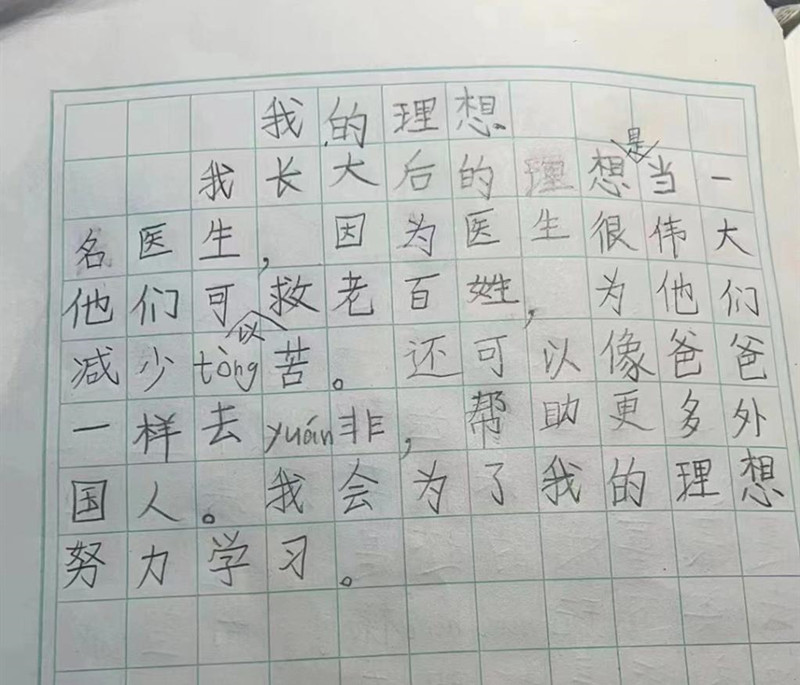 我的理想
我长大后的理想是当一
名医生，因为医生很伟大
他们可以救老百姓，为他们
减少tòng苦。还可以像爸爸
一样去yuán非，帮助更多外
国人。我会为了我的理想
努力学习。